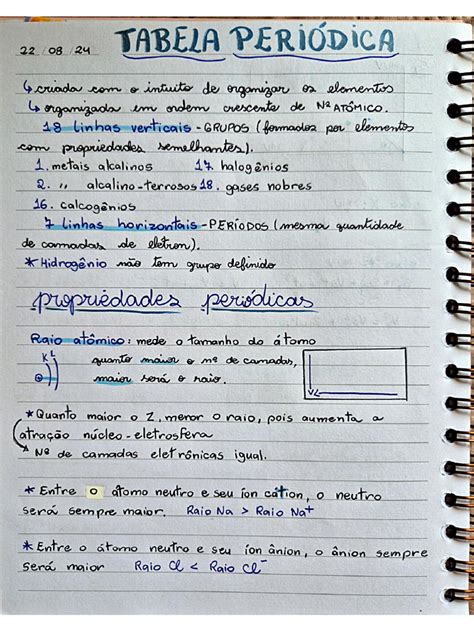 22/08/24 TABELA PERIÓDICA
↳ criada com o intuito de organizar os elementos
↳ organizada em ordem crescente de Nº ATÔMICO.
18 linhas verticais - GRUPOS (formados por elementos
com propriedades semelhantes).
1. metais alcalinos 17. halogênios
2. " alcalino-terrosos 18. gases nobres
16. calcogênios
7 linhas horizontais - PERÍODOS (mesma quantidade
de camadas de elétron).
* Hidrogênio não tem grupo definido
propriedades periódicas
Raio atômico: mede o tamanho do átomo
K L quanto maior o nº de camadas,
maior será o raio.
* Quanto maior o Z, menor o raio, pois aumenta a
atração núcleo-eletrosfera
Nº de camadas eletrônicas igual.
* Entre o átomo neutro e seu íon cátion, o neutro
será sempre maior. Raio Na > Raio Na⁺
* Entre o átomo neutro e seu íon ânion, o ânion sempre
será maior Raio Cl < Raio Cl⁻